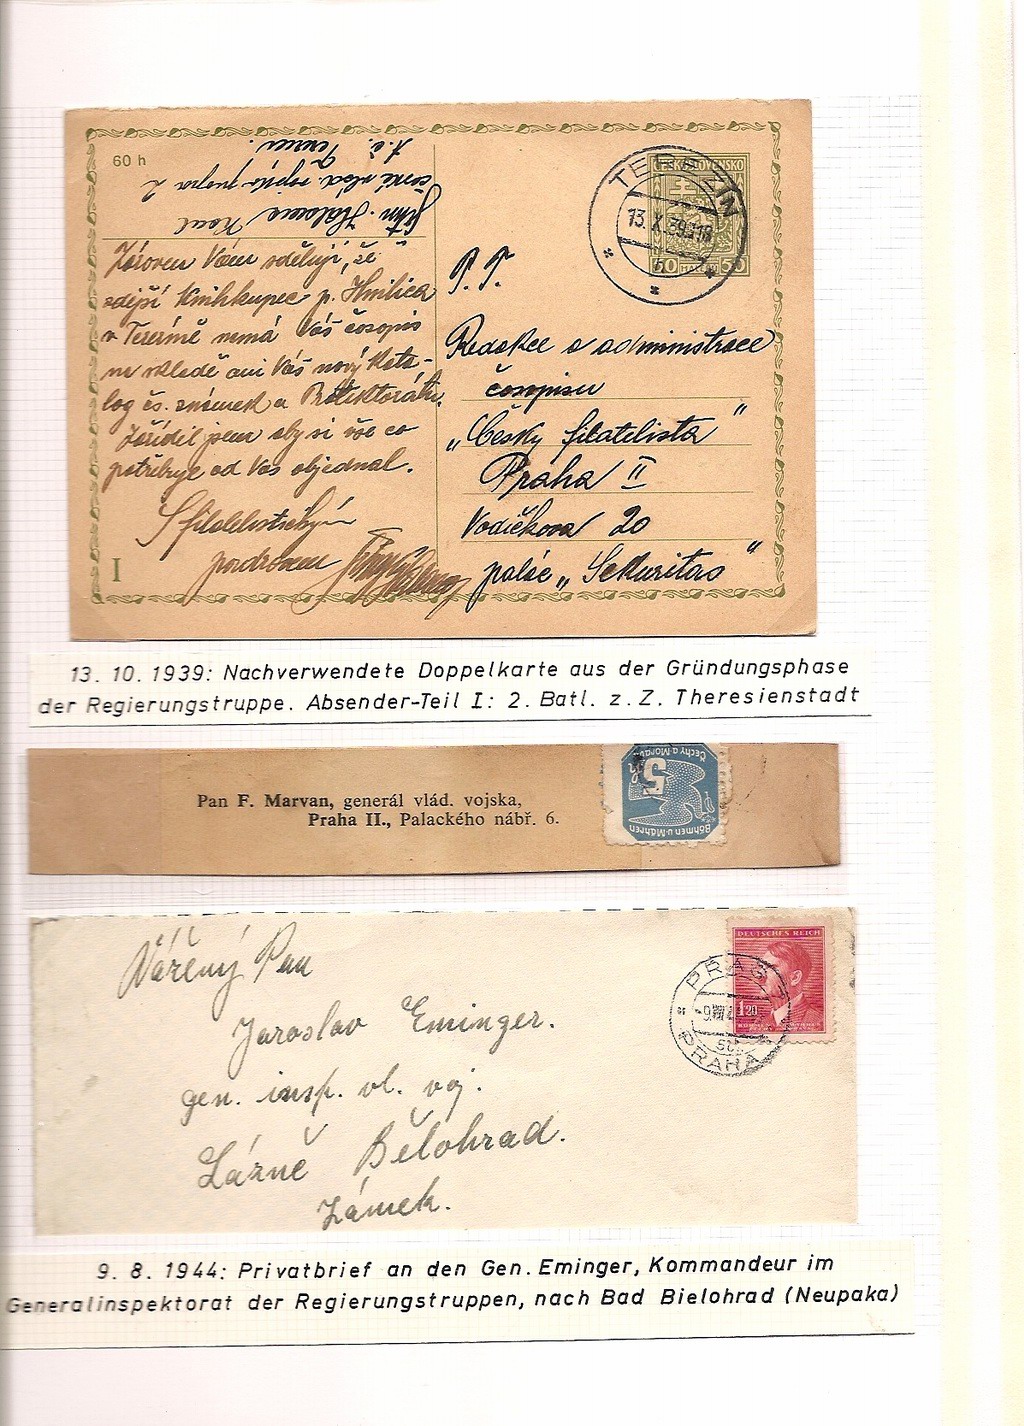 60 h
škpt. Karel
české vlád. vojsko prapor 2
t. č. Terezín.
Zároveň Vám sděluji, že
zdejší knihkupec p. Hmilica
v Terezíně nemá Váš časopis
na skladě ani Váš nový kata-
log čs. známek a Protektorátu.
Zařídil jsem aby si vše co
potřebuje od Vás objednal.
S filatelistickým
pozdravem
I
TEREZÍN
13.X.39-18
ČESKOSLOVENSKO
50 HALÉŘŮ 50
P. T.
Redakce a administrace
časopisu
„Český filatelista"
Praha II
Vodičkova 20
palác „Sekuritas"
13. 10. 1939: Nachverwendete Doppelkarte aus der Gründungsphase
der Regierungstruppe. Absender-Teil I: 2. Batl. z. Z. Theresienstadt
Pan F. Marvan, generál vlád. vojska,
Praha II., Palackého nábř. 6.
Čechy a Morava
5h
Böhmen u. Mähren
Vážený Pan
Jaroslav Eminger.
gen. insp. vl. voj.
Lázně Bělohrad.
Zámek.
DEUTSCHES REICH
1.20
PRAG 7
PRAHA
9. 8. 1944: Privatbrief an den Gen. Eminger, Kommandeur im
Generalinspektorat der Regierungstruppen, nach Bad Bielohrad (Neupaka)